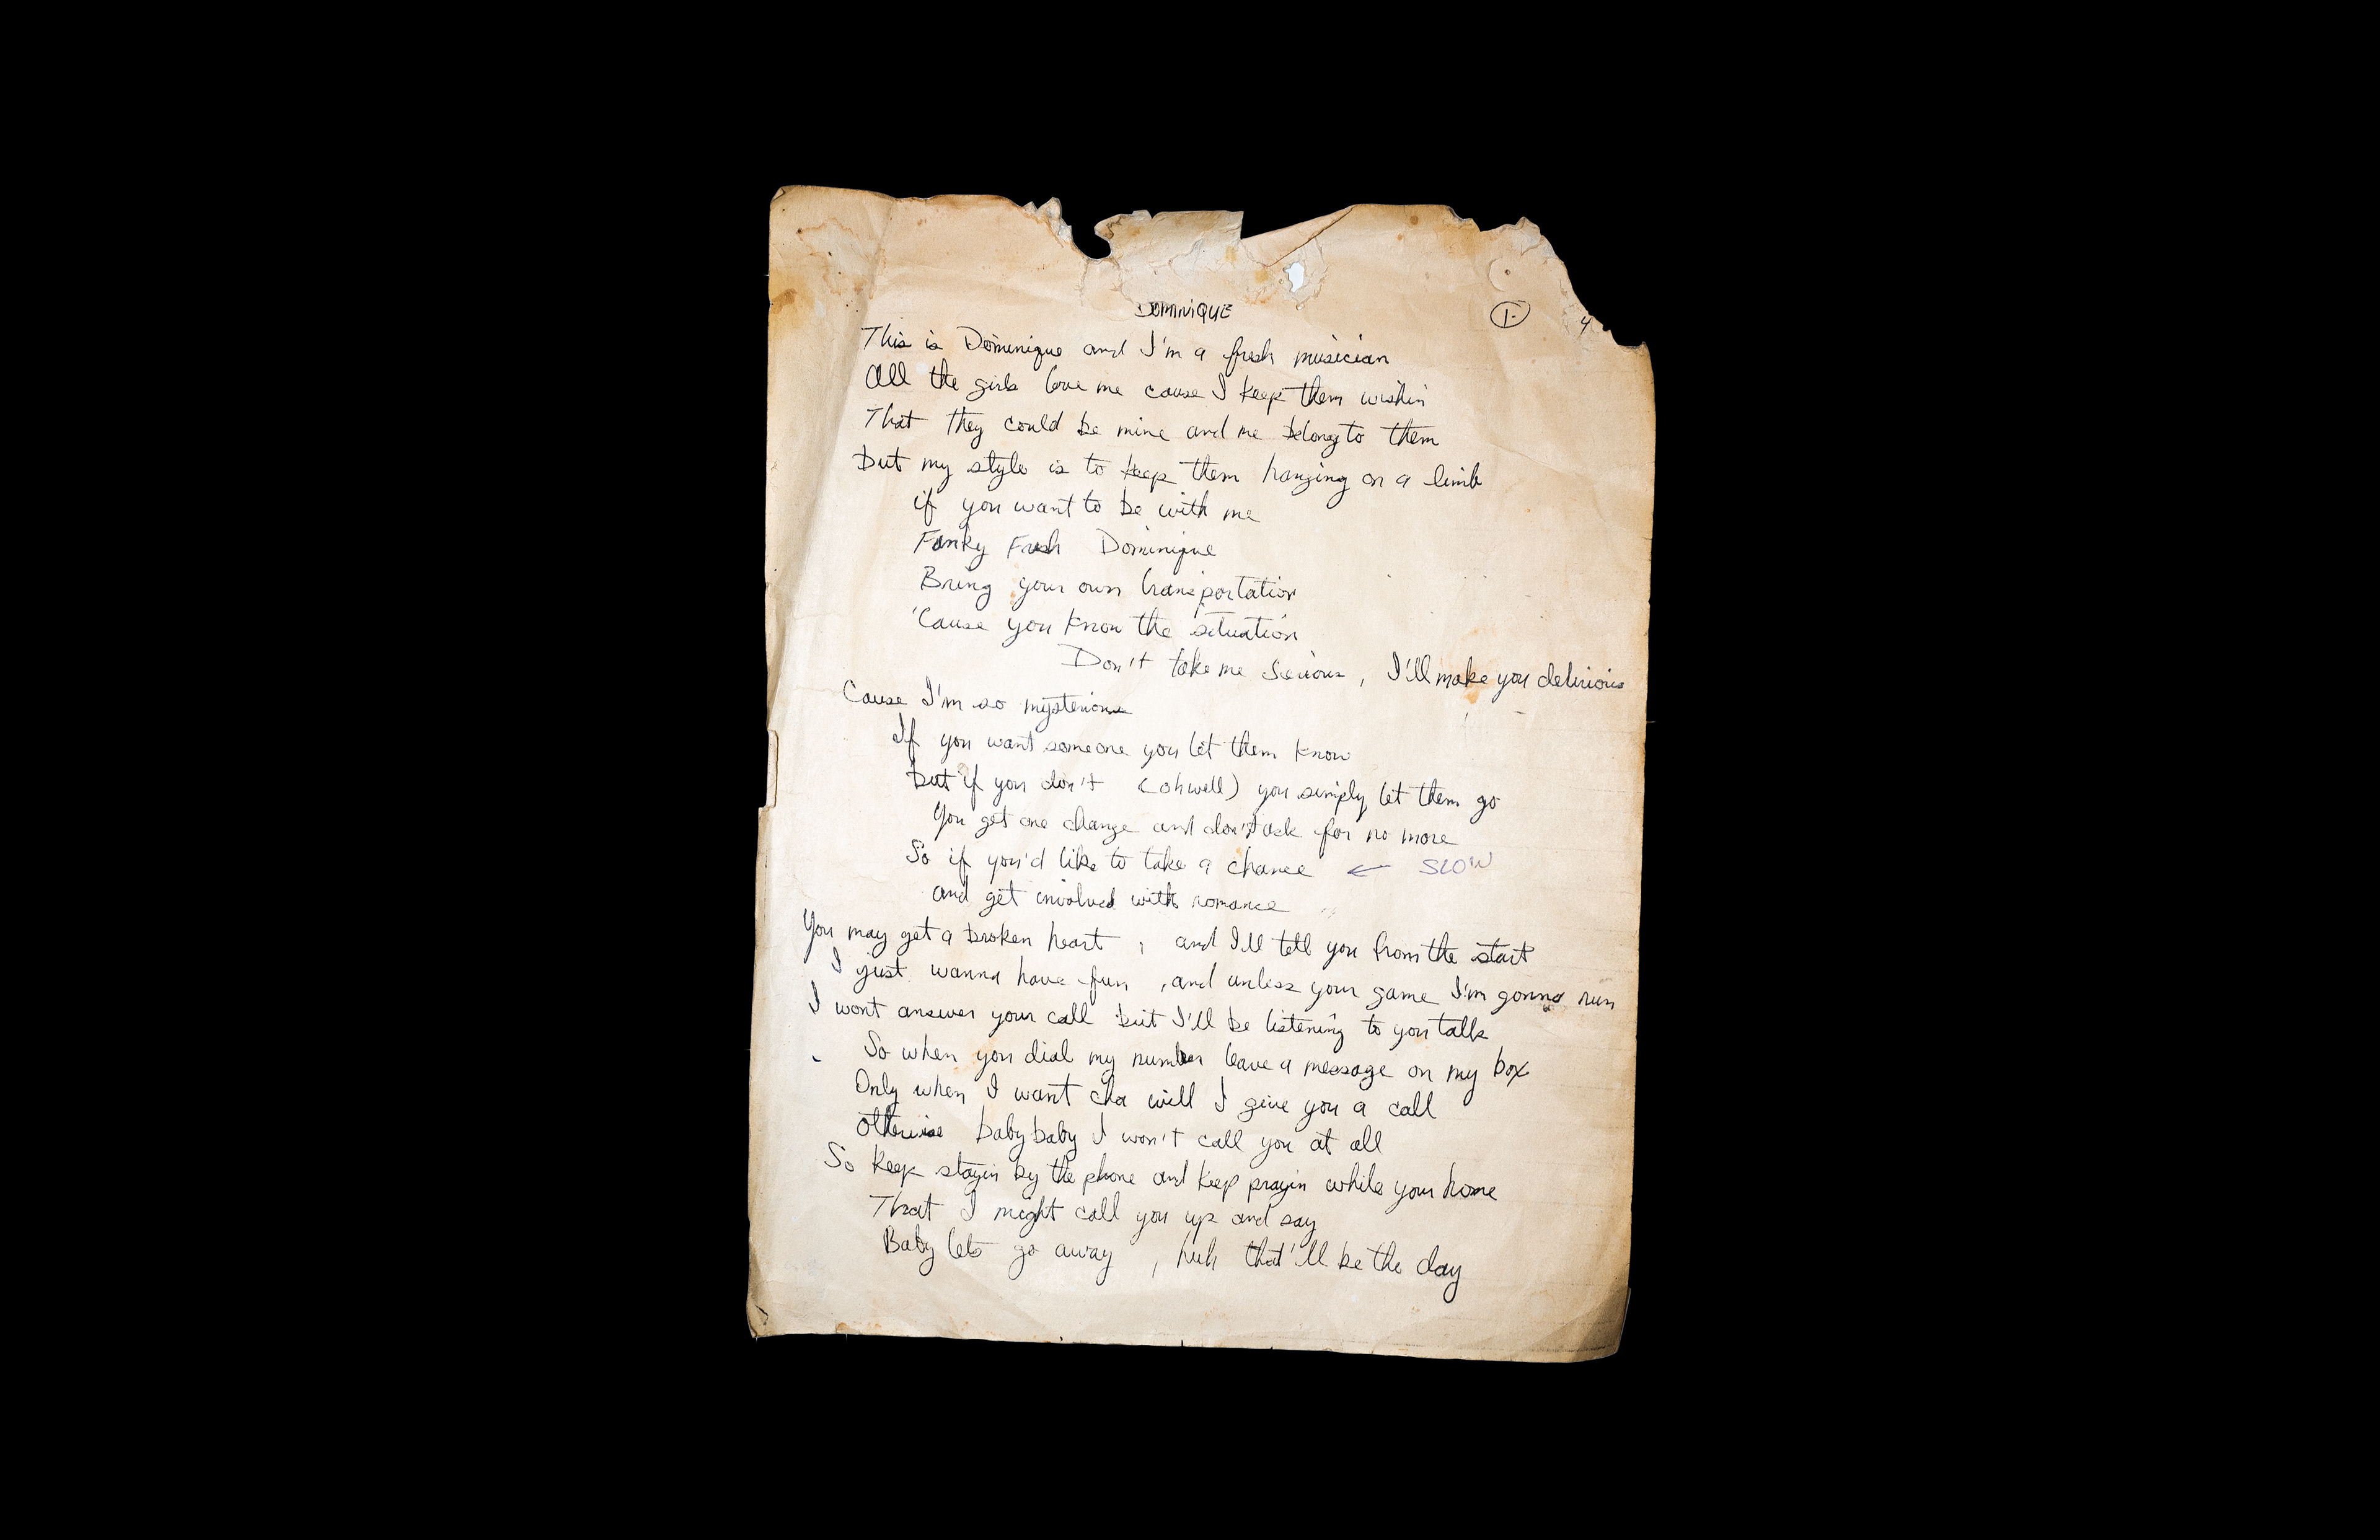 DOMINIQUE
1.
4
This is Dominique and I'm a fresh musician
All the girls love me cause I keep them wishin
That they could be mine and me belong to them
but my style is to keep them hanging on a limb
if you want to be with me
Fonky Fresh Dominique
Bring your own transportation
'Cause you know the situation
Don't take me serious, I'll make you delirious
Cause I'm so mysterious
If you want someone you let them know
but if you don't (oh well) you simply let them go
You get one change and don't ask for no more
So if you'd like to take a chance ← SLOW
and get involved with romance
You may get a broken heart, and I'll tell you from the start
I just wanna have fun, and unless your game I'm gonna run
I wont answer your call but I'll be listening to you talk
So when you dial my number leave a message on my box
Only when I want cha will I give you a call
otherwise baby baby I won't call you at all
So keep stayin by the phone and keep prayin while your home
That I might call you up and say
Baby lets go away, huh that'll be the day